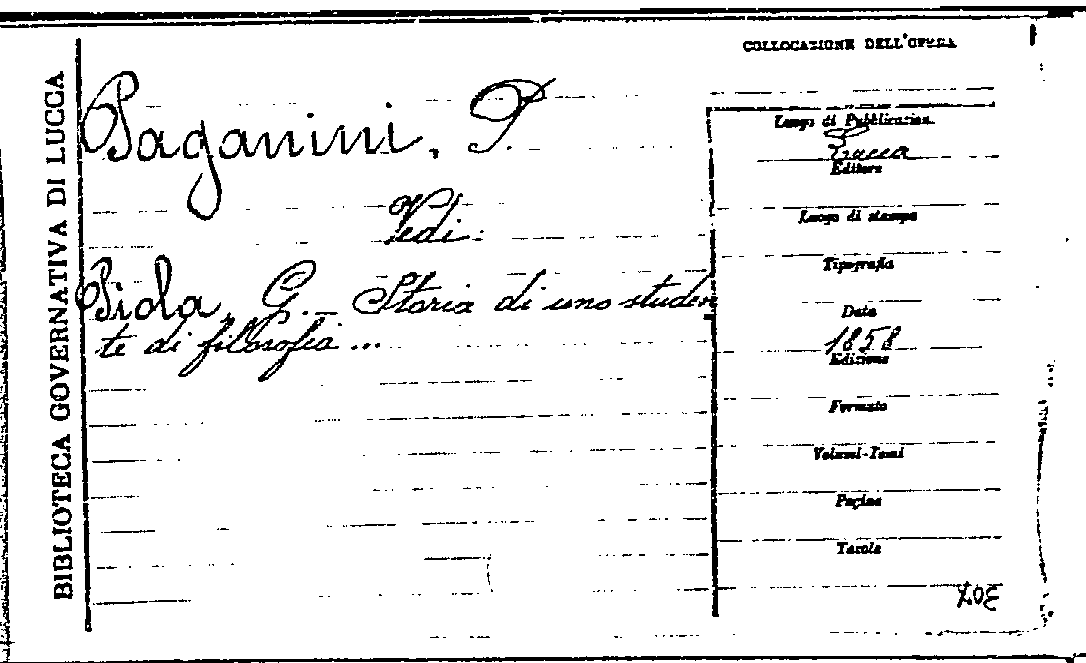 BIBLIOTECA GOVERNATIVA DI LUCCA
COLLOCAZIONE DELL'OPERA
Paganini, P.
Vedi:
Piola, G. - Storia di uno studen
te di filosofia...
Luogo di Pubblicazion.
Lucca
Editore
Luogo di stampa
Tipografia
Data
1858
Edizione
Formato
Volumi-Tomi
Pagine
Tavole
307